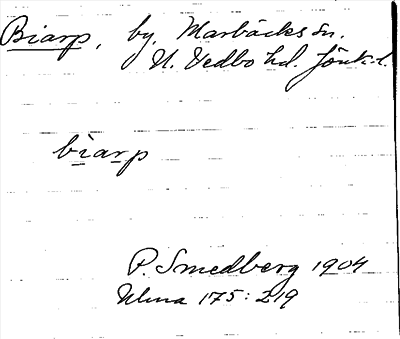 Biarp, by, Marbäcks sn.
N. Vedbo hd. Jönk. l.
biarp
P. Smedberg 1904
Ulma 175:219